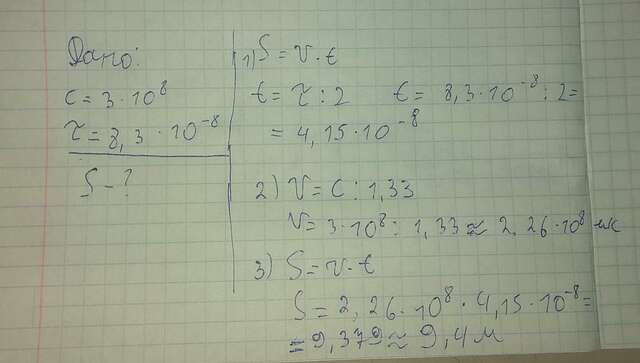 Дано:
c = 3 · 10⁸
τ = 8,3 · 10⁻⁸
S - ?
1) S = v · t
t = τ : 2    t = 8,3 · 10⁻⁸ : 2 =
= 4,15 · 10⁻⁸
2) V = c : 1,33
V = 3 · 10⁸ : 1,33 ≈ 2,26 · 10⁸ м/с
3) S = v · t
S = 2,26 · 10⁸ · 4,15 · 10⁻⁸ =
= 9,379 ≈ 9,4 м